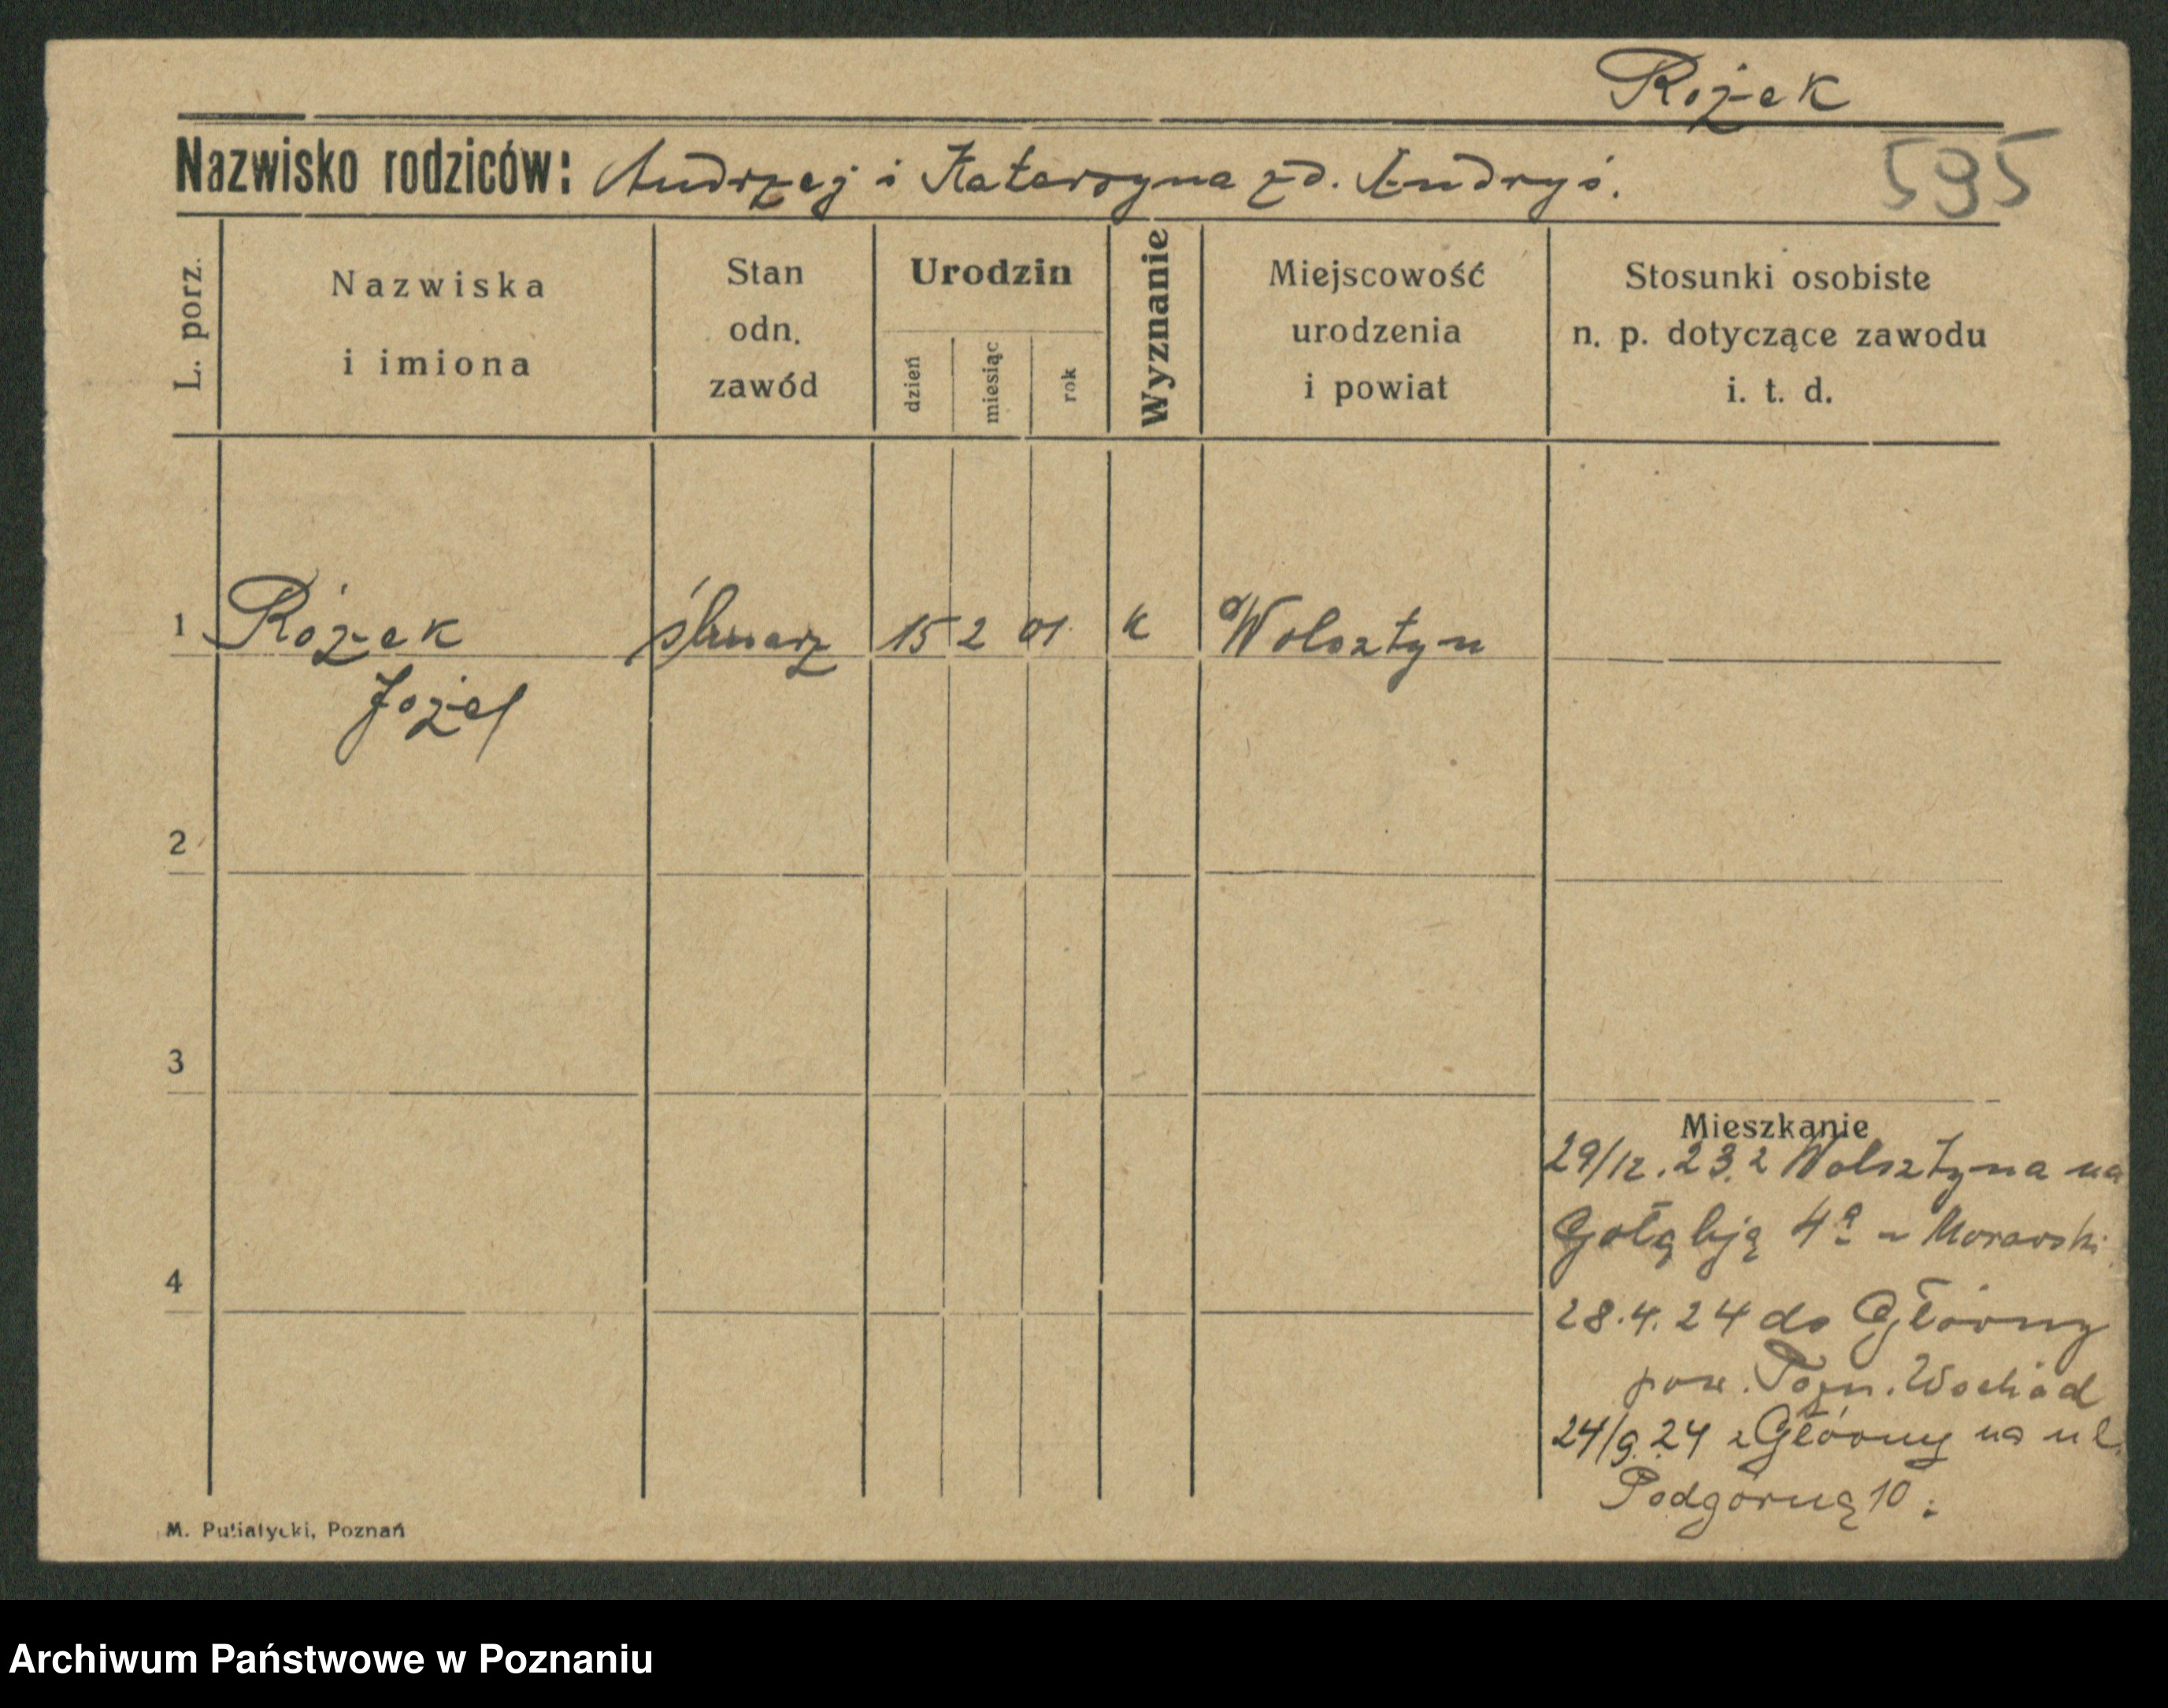 Rożek
Nazwisko rodziców: Andrzej i Katarzyna zd. Andryś.
595
L. porz.
Nazwiska
i imiona
Stan
odn.
zawód
Urodzin
dzień
miesiąc
rok
Wyznanie
Miejscowość
urodzenia
i powiat
Stosunki osobiste
n. p. dotyczące zawodu
i. t. d.
1 Rożek ślusarz 15 2 01 k Wolsztyn
Józef
2
3
4
Mieszkanie
29/12.23. z Wolsztyna na
Gołębią 4a u Morawski
28.4.24 do Główny
pow. Pozn. Wschód
24/9.24 z Główny na ul.
Podgórną 10.
M. Putiatycki, Poznań
Archiwum Państwowe w Poznaniu